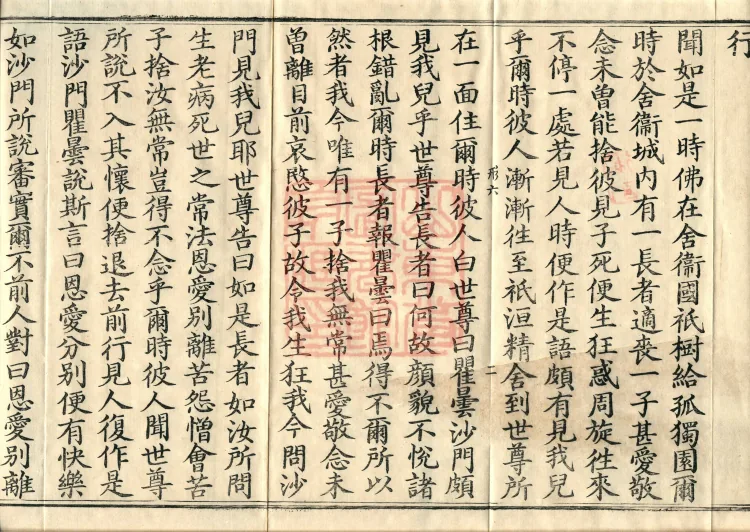 行
聞如是一時佛在舍衞國祇樹給孤獨園爾
時於舍衞城內有一長者適喪一子甚愛敬
念未曾能捨彼見子死便生狂惑周旋往來
不停一處若見人時便作是語頗有見我兒
乎爾時彼人漸漸往至祇洹精舍到世尊所
形六
二
在一面住爾時彼人白世尊曰瞿曇沙門頗
見我兒乎世尊告長者曰何故顏貌不悅諸
根錯亂爾時長者報瞿曇曰焉得不爾所以
然者我今唯有一子捨我無常甚愛敬念未
曾離目前哀愍彼子故令我生狂我今問沙
門見我兒耶世尊告曰如是長者如汝所問
生老病死世之常法恩愛別離苦怨憎會苦
子捨汝無常豈得不念乎爾時彼人聞世尊
所說不入其懷便捨退去前行見人復作是
語沙門瞿曇說斯言曰恩愛分別便有快樂
如沙門所說審實爾不前人對曰恩愛別離